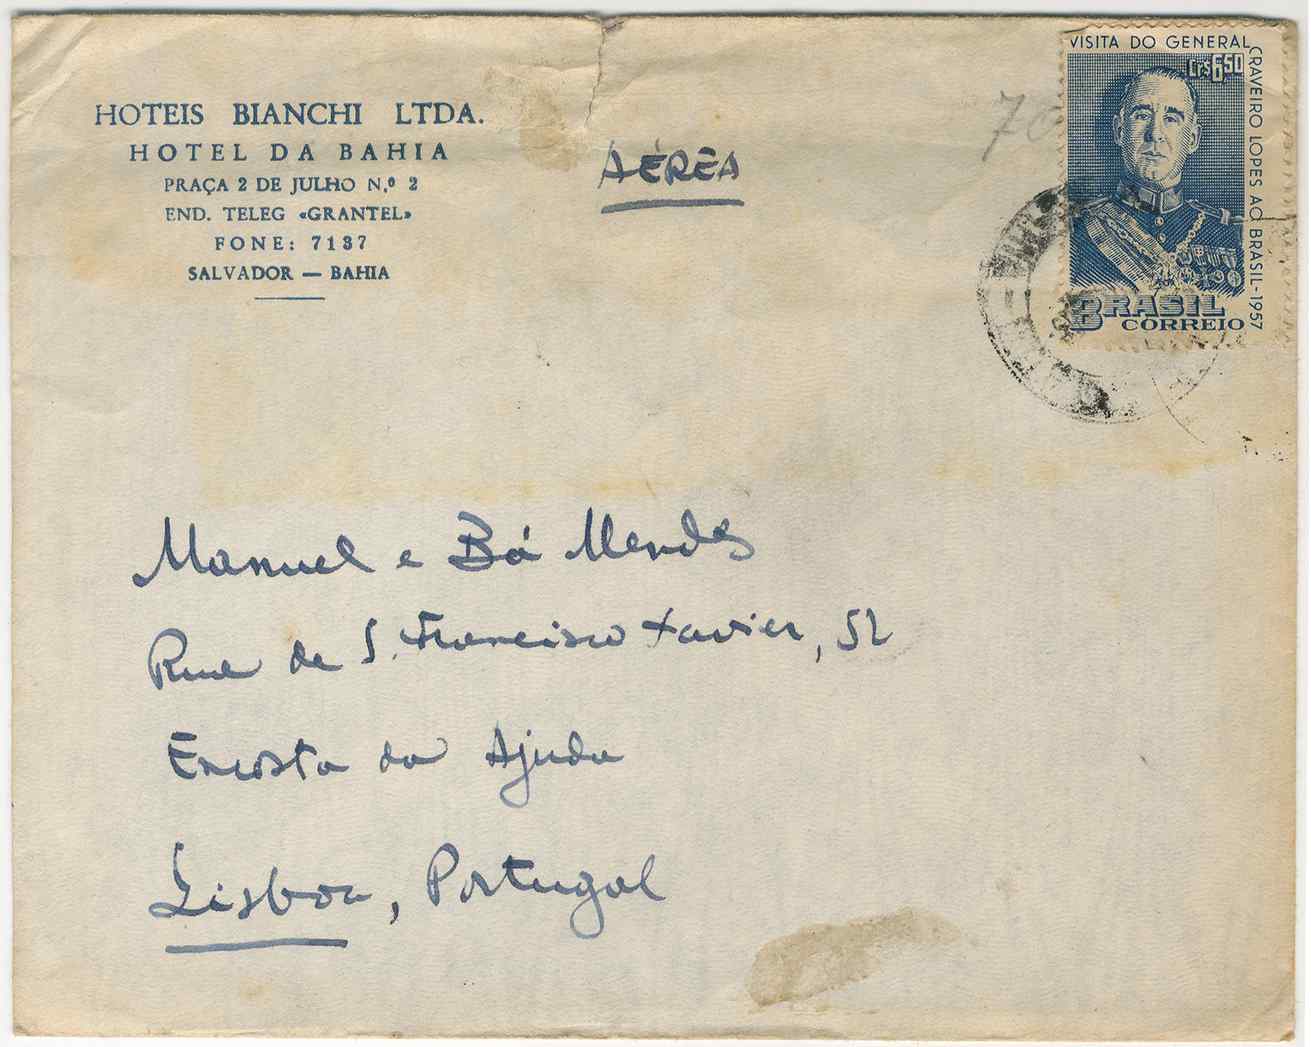 HOTEIS BIANCHI LTDA.
HOTEL DA BAHIA
PRAÇA 2 DE JULHO N.º 2
END. TELEG «GRANTEL»
FONE: 7137
SALVADOR — BAHIA
AÉREA
70
VISITA DO GENERAL
CRAVEIRO LOPES AO BRASIL-1957
Cr$ 6,50
BRASIL
CORREIO
Manuel e Bá Mendes
Rua de S. Francisco Xavier, 52
Encosta da Ajuda
Lisboa, Portugal